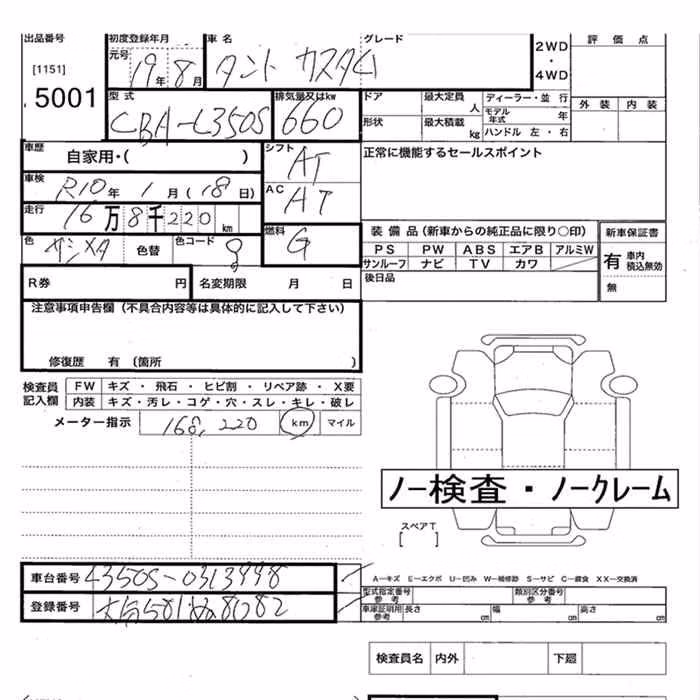 出品番号 初度登録年月 車名 グレード
元号 19年8月 タント カスタム
[1151]
5001
2WD・4WD
評価点
外装 内装
型式 排気量又はkw
CBA-L350S 660
ドア 最大定員 人 ディーラー・並行
モデル年式 年
形状 最大積載 kg ハンドル 左・右
車歴 自家用・( ) シフト AT
正常に機能するセールスポイント
車検 R10年 1月(18日) AC AT
走行 16万8千220km
装備品(新車からの純正品に限り○印) 新車保証書
色 色替 色コード 燃料 G
PS PW ABS エアB アルミW
サンルーフ ナビ TV カワ
有 車内積込無効
無
R券 円 名変期限 月 日
後日品
注意事項申告欄(不具合内容等は具体的に記入して下さい)
修復歴 有(箇所 )
検査員記入欄
FW キズ・飛石・ヒビ割・リペア跡・X要
内装 キズ・汚レ・コゲ・穴・スレ・キレ・破レ
メーター指示 168,220 km マイル
ノー検査・ノークレーム
スペアT
[ ]
A―キズ E―エクボ U―凹み W―補修跡 S―サビ C―腐食 XX―交換済
車台番号 L350S-0313998
型式指定番号参考 類別区分番号参考
登録番号 8082
車庫証明用参考 長さ cm 幅 cm 高さ cm
検査員名 内外 下廻